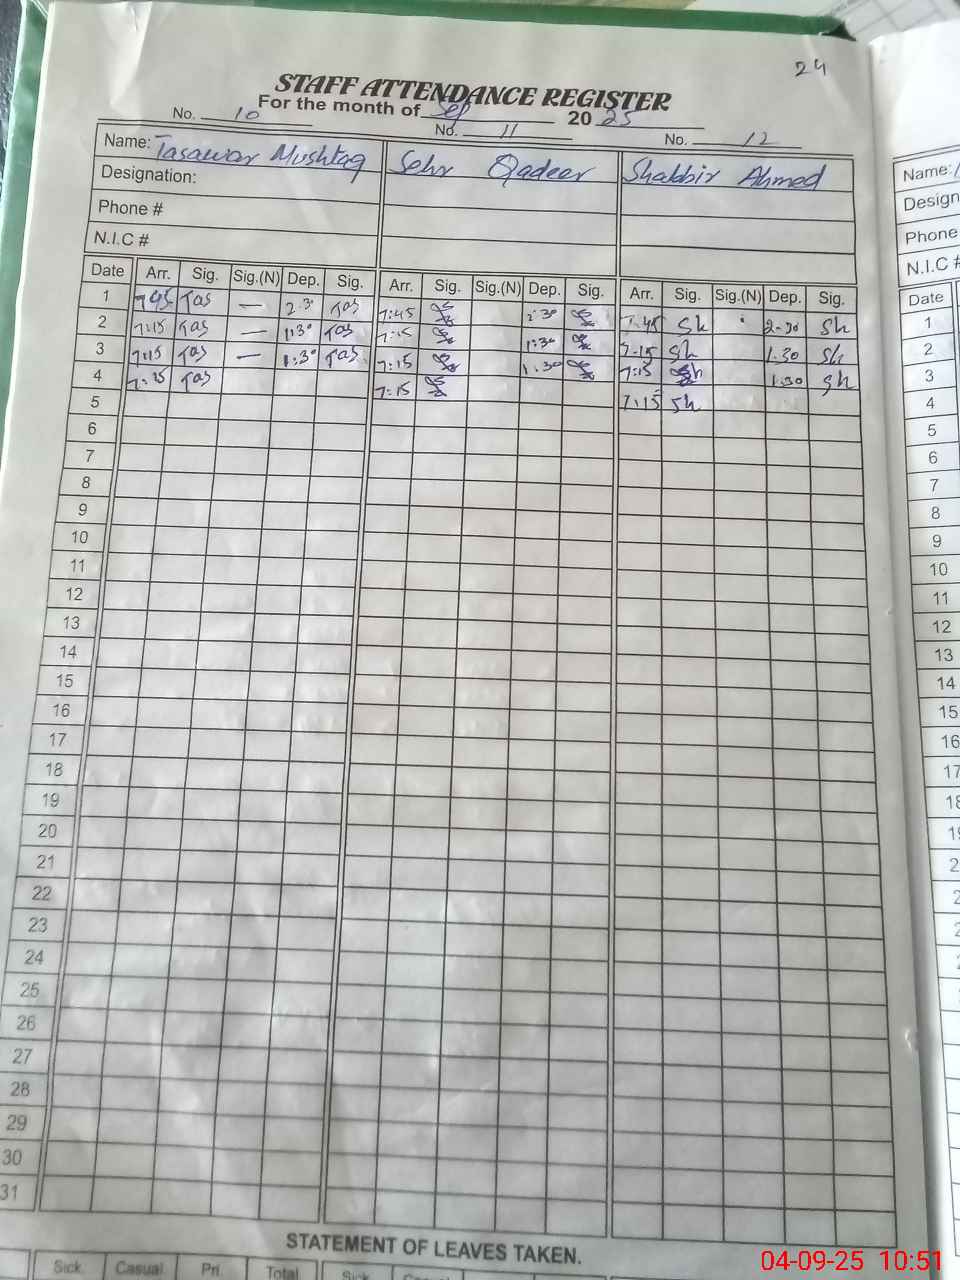 24
STAFF ATTENDANCE REGISTER
For the month of Sep 20 25
No. 10 No. 11 No. 12
Name: Tasawar Mushtaq Sehr Qadeer Shabbir Ahmed Name:
Designation: Design
Phone # Phone
N.I.C # N.I.C #
Date Arr. Sig. Sig.(N) Dep. Sig. Arr. Sig. Sig.(N) Dep. Sig. Arr. Sig. Sig.(N) Dep. Sig. Date
1 7:45 Tas — 2:30 Tas 7:45 2:30 7:45 Sh 2-30 Sh 1
2 7:15 Tas — 1:30 Tas 7:15 1:30 7-15 Sh 1.30 Sh 2
3 7:15 Tas — 1:30 Tas 7:15 1:30 7:15 Sh 1.30 Sh 3
4 7:15 Tas 7:15 7:15 Sh 4
5 5
6 6
7 7
8 8
9 9
10 10
11 11
12 12
13 13
14 14
15 15
16 16
17 17
18 18
19 19
20
21
22
23
24
25
26
27
28
29
30
31
STATEMENT OF LEAVES TAKEN.
Sick Casual Pri. Total Sick Casual
04-09-25 10:51